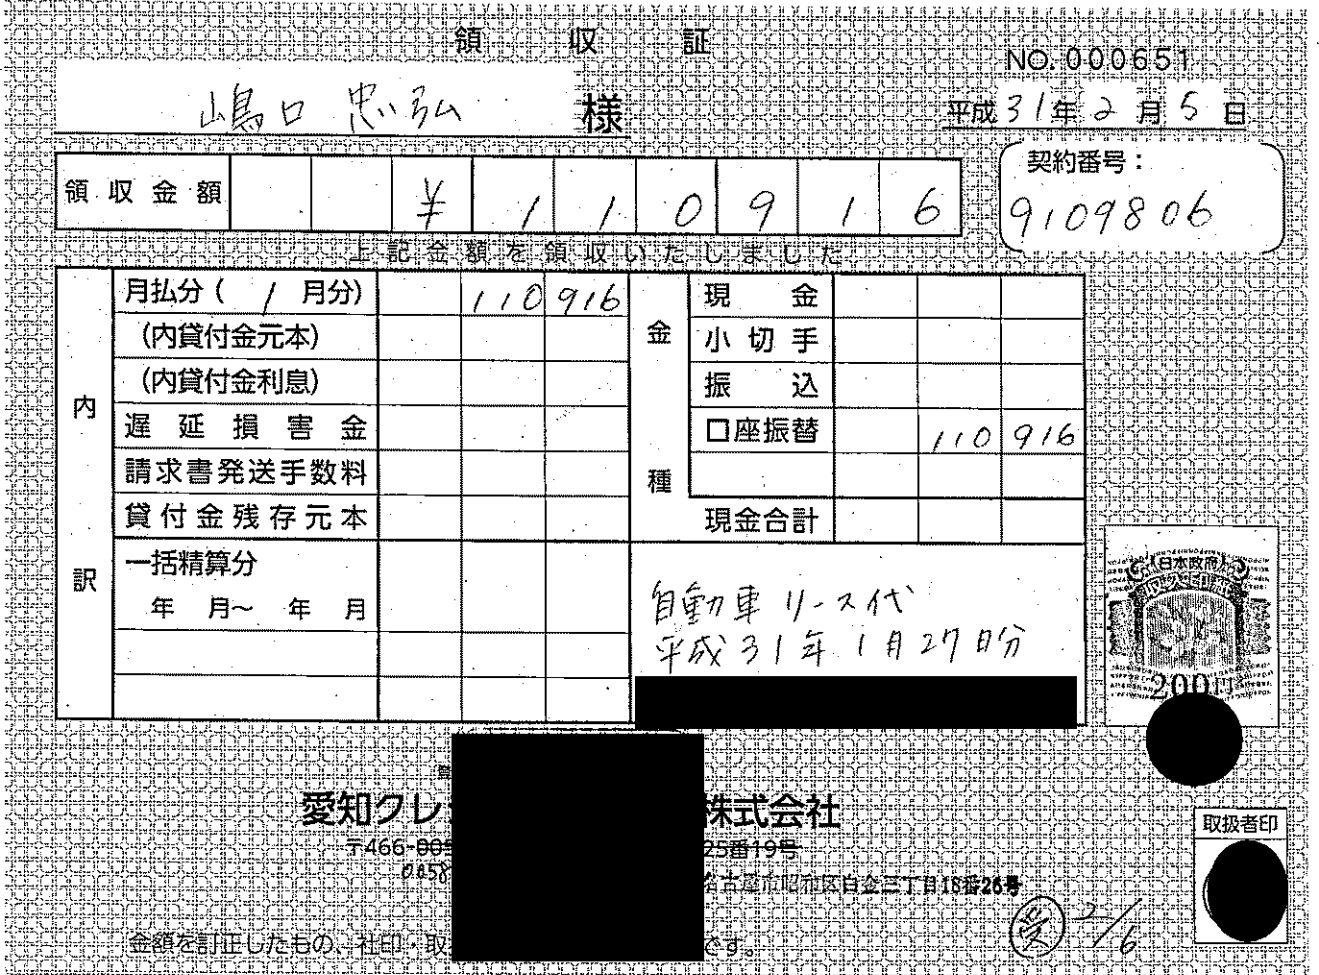 領収証
NO.000651
嶋口 忠弘 様
平成31年2月5日
契約番号：
9109806
領収金額 ¥110916
上記金額を領収いたしました
内訳
月払分（1月分） 110 916
（内貸付金元本）
（内貸付金利息）
遅延損害金
請求書発送手数料
貸付金残存元本
一括精算分
年 月～ 年 月
金種
現金
小切手
振込
口座振替 110 916
現金合計
自動車リース代
平成31年1月27日分
日本政府
200円
愛知クレ 株式会社
〒466-005 25番19号
0058 名古屋市昭和区白金三丁目18番26号
取扱者印
受 2/6
金額を訂正したもの、社印・取 です。